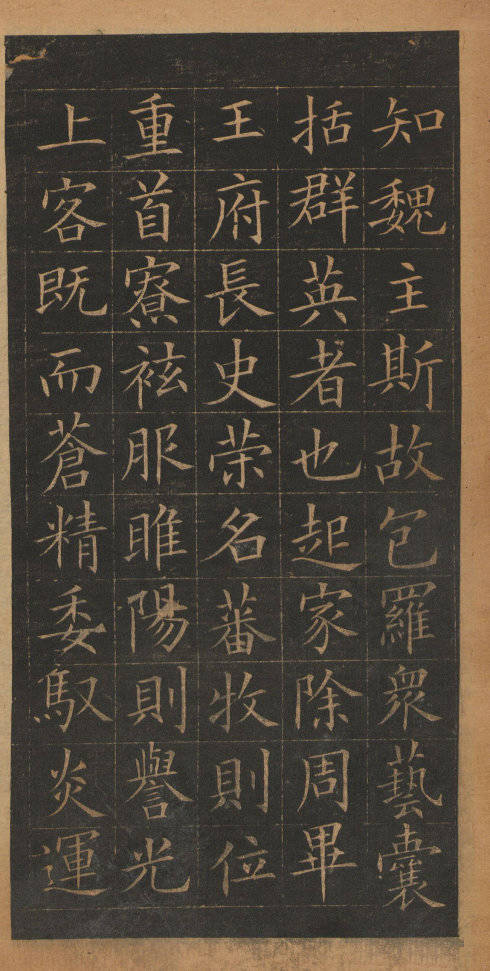 知魏主斯故包羅衆藝囊
括群英者也起家除周畢
王府長史荣名蕃牧則位
重首寮袨服睢陽則譽光
上客既而蒼精委馭炎運